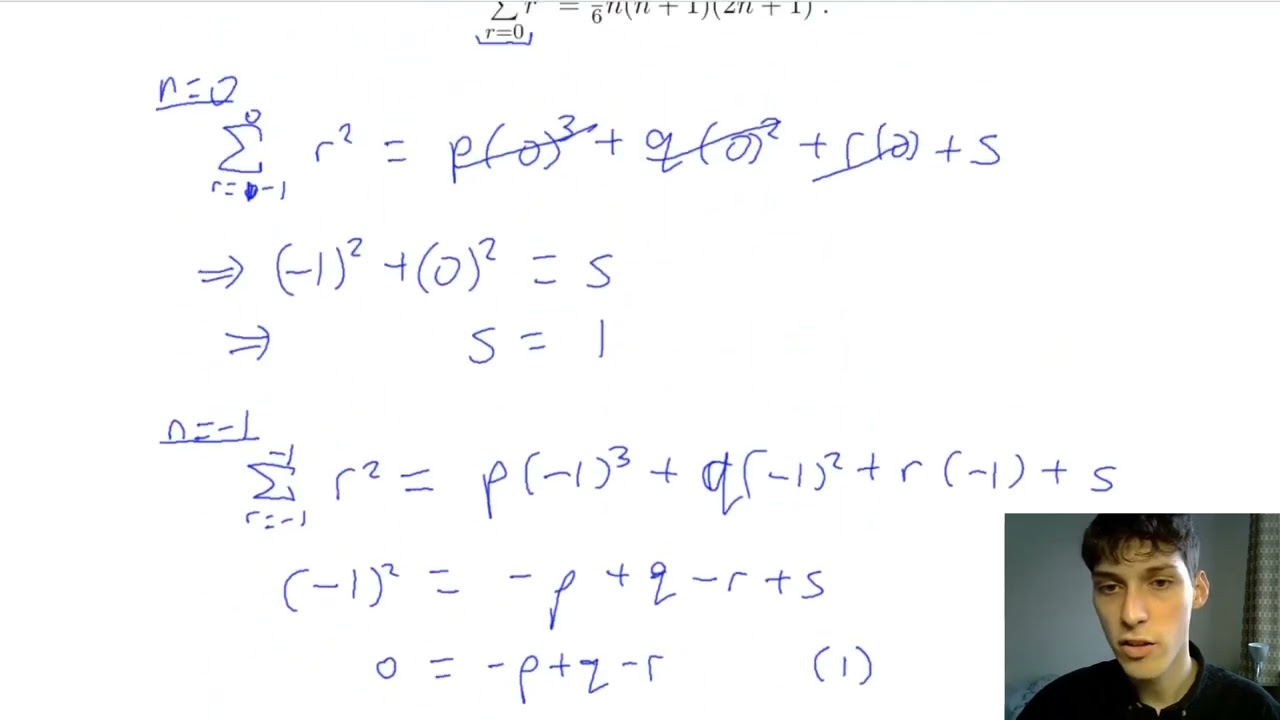 ∑ r = 1/6 n(n + 1)(2n + 1) .
r=0
n=0
0
∑ r² = p(0)³ + q(0)² + r(0) + s
r=-1
⇒ (-1)² + (0)² = s
⇒ s = 1
n=-1
-1
∑ r² = p(-1)³ + q(-1)² + r(-1) + s
r=-1
(-1)² = -p + q - r + s
0 = -p + q - r (1)